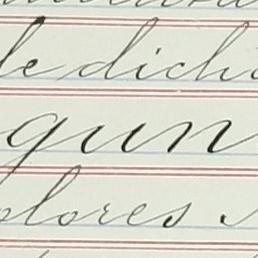 le dich
gun
olores